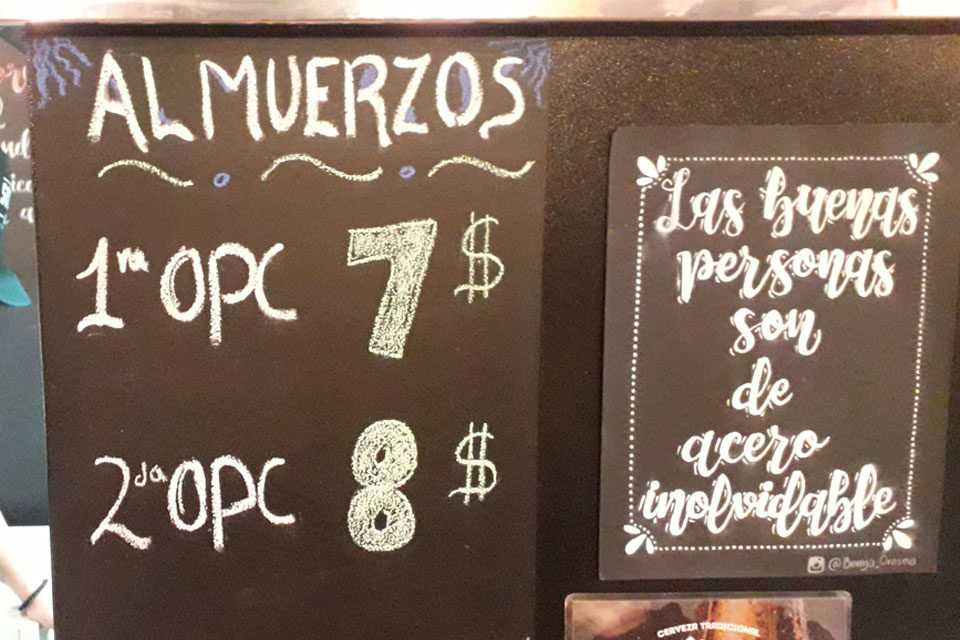 ALMUERZOS
1ra OPC 7$
2da OPC 8$
Las buenas
personas
son
de
acero
inolvidable
CERVEZA TRADICIONAL